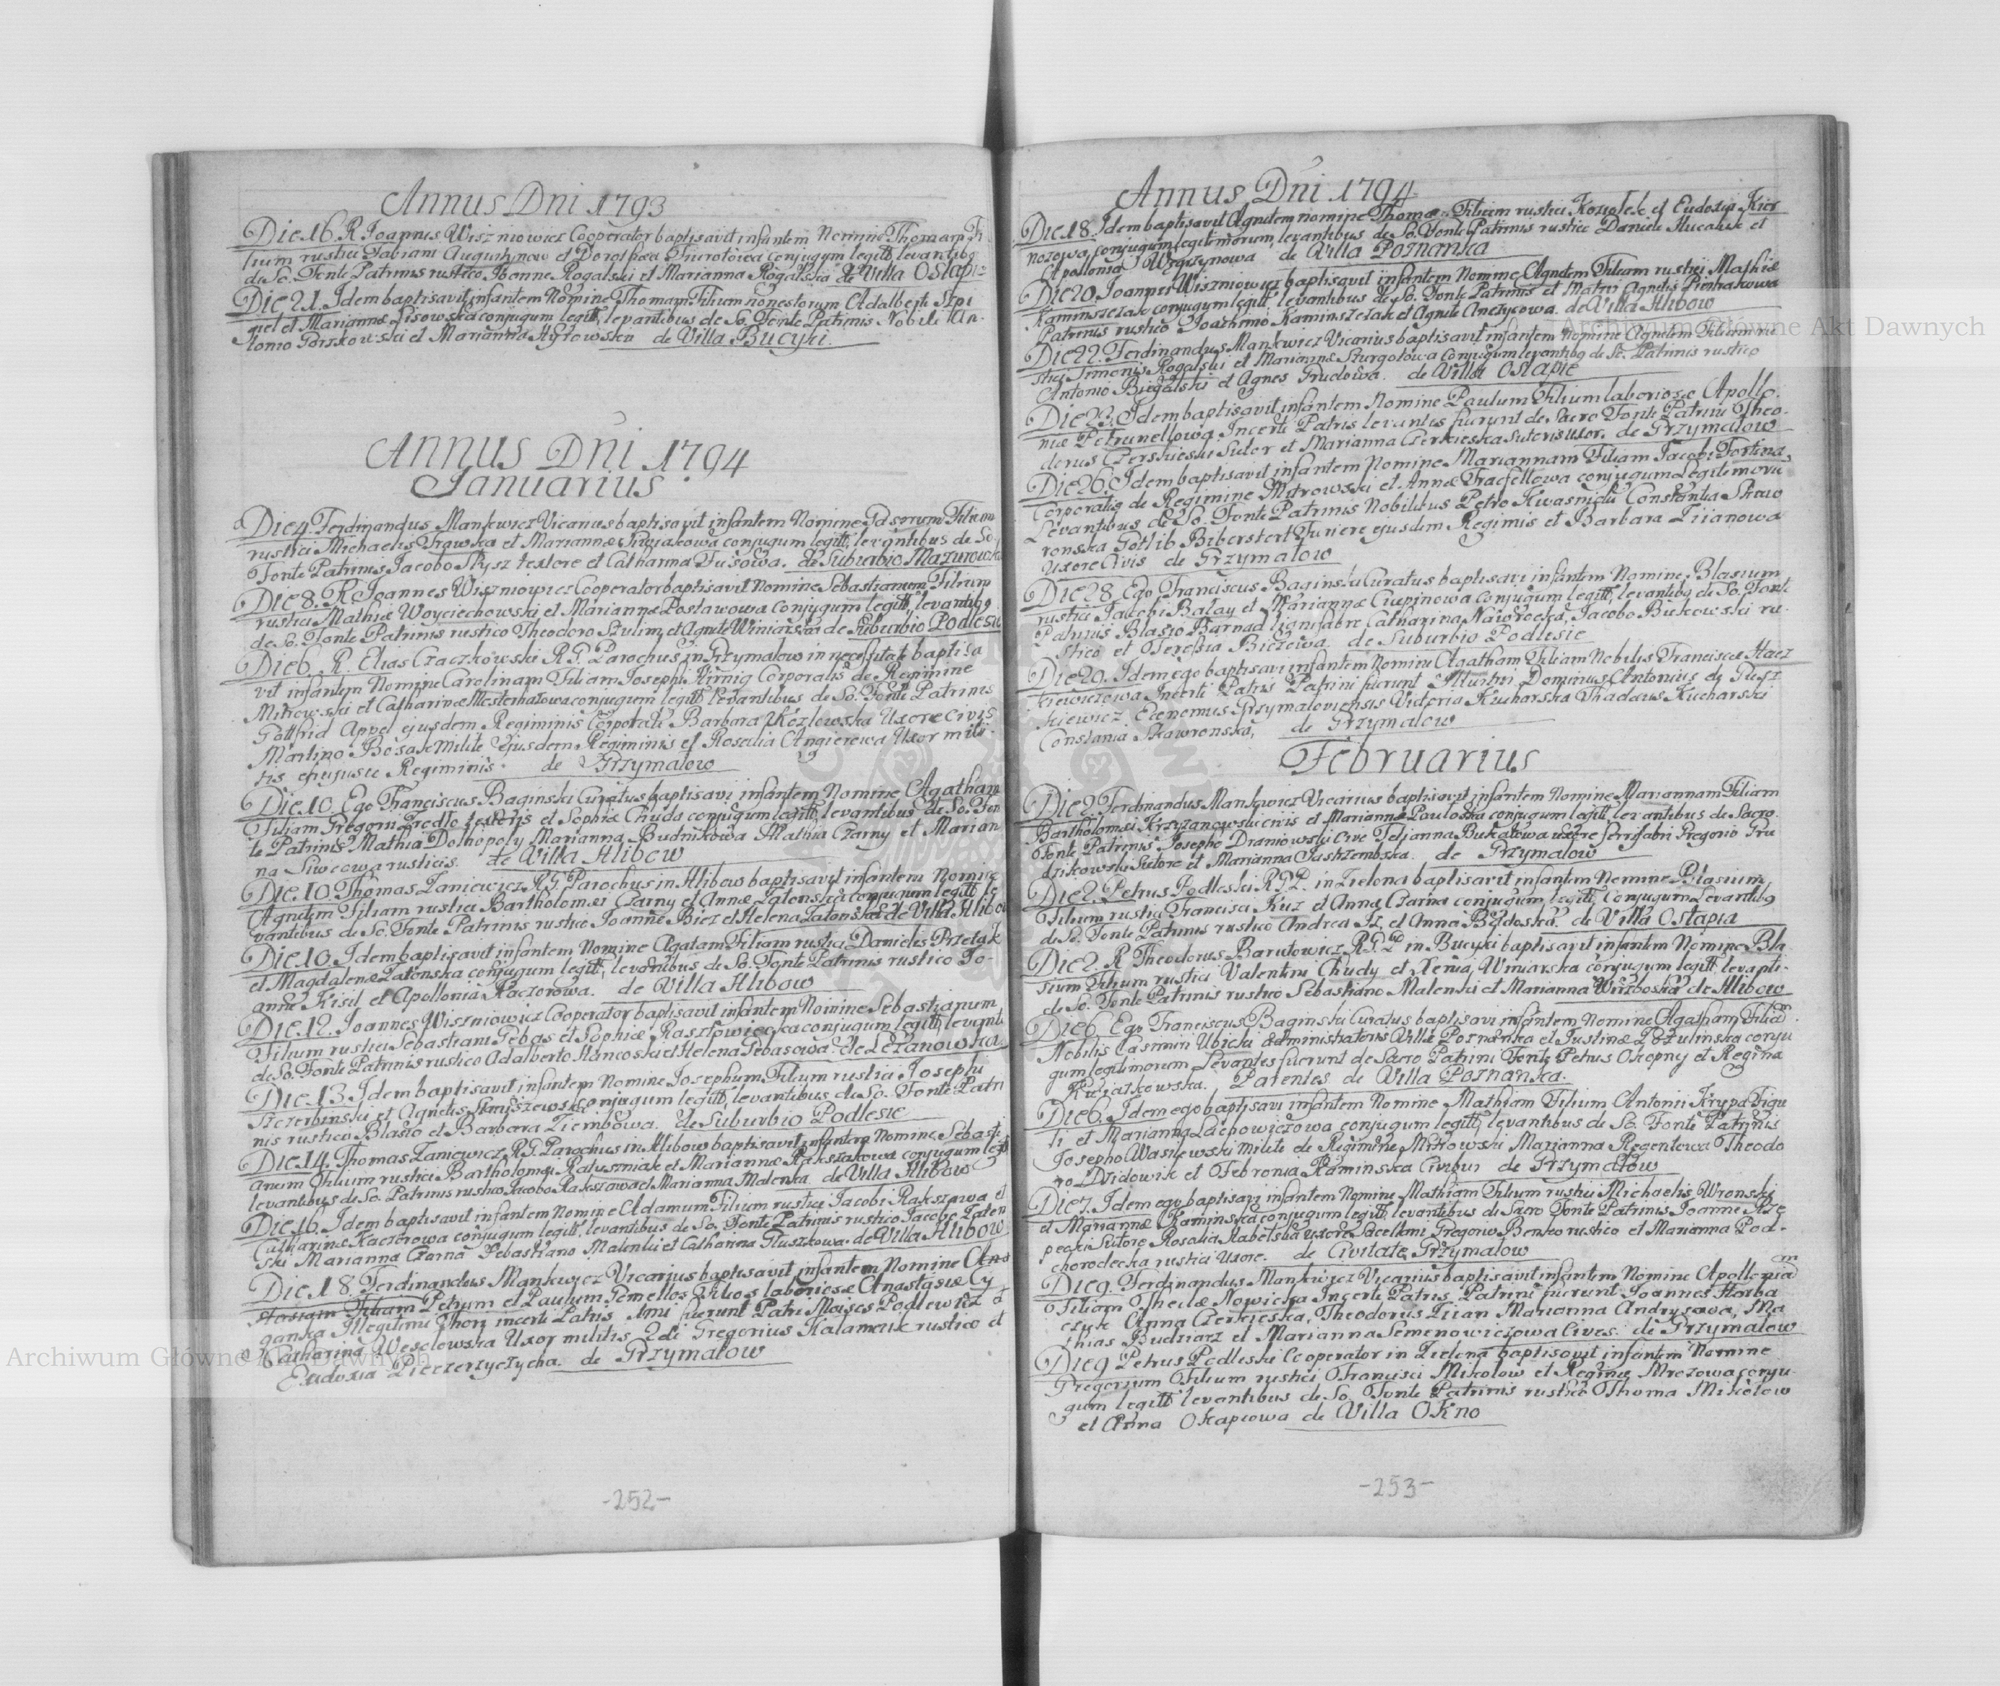 Annus Dni 1793
Die 16. R. Joannes Wiszniowicz Cooperator baptisavit infantem Nomine Thomam Fi
lium rustici Fabiani Augustynow et Dorothea conjugum legitt, levantibq
de So. Fonte Patrinis rustico Ionne Rogalski et Marianna Rogalska de Villa Ostapie
Die 21. Idem baptisavit infantem Nomine Thomam Filium honestorum Adalberti Stpi
et Mariannæ Lisowska conjugum legitt, levantibus de So. Fonte Patrinis Nobili An-
tonio Porskowski et Marianna Hytrowska de Villa Bucyki.
Annus Dni 1794
Januarius
Die 4. Ferdinandus Mankwicz Vicarius baptisavit infantem Nomine Filium
rustici Michaelis et Mariannæ conjugum legitt, levantibus de So.
Fonte Patrinis Jacobo textore et Catharina Dusowa. de Suburbio Mazurowka
Die 8. R. Joannes Wiszniowicz Cooperator baptisavit Nomine Sebastianum Filium
rustici Mathiæ Woyciechowski et Mariannæ Postawowa conjugum legitt, levantibq
de So. Fonte Patrinis rustico Theodoro et Agnete Winiarska de Suburbio Podlesie
Die 6. R. Elias Czaczkowski R. G. Parochus in Grzymalow in necessitate baptisa
vit infantem Nomine Carolinam Filiam Josephi Corporalis de Regimine
Mitrowski et Catharinæ conjugum legitt levantibus de So. Fonte Patrinis
Gottfrid Appel ejusdem Regiminis Corporali Barbara Kozlowska Uxore Civis
Martino Bosak Milite Ejusdem Regiminis et Rosalia Angierowa Uxor mili-
tis Regiminis. de Grzymalow
Die 10. Ego Franciscus Baginski Curatus baptisavi infantem Nomine Agatham
Filiam Gregorii textoris et Sophiæ Chuda conjugum legitt levantibus de So. Fon
te Patrinis Mathia Dolhopoly Marianna Budnikowa Mathia Czarny et Marian
na Siwcowa rusticis. de Villa Hlibow
Die 10. Thomas Laniewicz R. G. Parochus in Hlibow baptisavit infantem Nomine
Agnetem Filiam rustici Bartholomæi Czarny et Annæ Zatonska conjugum legitt le
vantibus de So. Fonte Patrinis rustico Joanne Biez et Helena Zatonska de Villa Hlibow
Die 10. Idem baptisavit infantem Nomine Agatam Filiam rustici Danielis
et Magdalenæ Zatonska conjugum legitt, levantibus de So. Fonte Patrinis rustico Jo-
anne Kisil et Apollonia Kaczorowa. de Villa Hlibow
Die 12. Joannes Wiszniowicz Cooperator baptisavit infantem Nomine Sebastianum
Filium rustici Sebastiani Gebas et Sophiæ conjugum legitt, levanti
de So. Fonte Patrinis rustico Adalberto Hancoski et Helena Gebasowa. de Lezanowka
Die 13. Idem baptisavit infantem Nomine Josephum Filium rustici Josephi
Szczerbinski et Agnetis conjugum legitt, levantibus de So. Fonte Patri
nis rustico Blasio et Barbara Ziembowa. de Suburbio Podlesie
Die 14. Thomas Laniewicz R. G. Parochus in Hlibow baptisavit infantem Nomine Sebasti
anum Filium rustici Bartholomæi Ratuszniak et Mariannæ Rakszakowa conjugum legitt
levantibus de So. Patrinis rustico Jacobo Rakszawa et Marianna Malenka. de Villa Hlibow
Die 16. Idem baptisavit infantem Nomine Adamum Filium rustici Jacobi Rakszawa et
Catharinæ Kaczorowa conjugum legitt, levantibus de So. Fonte Patrinis rustico Jacobo Zaton
ski Marianna Czarna Sebastiano Malenki et Catharina Gluszkowa. de Villa Hlibow
Die 18. Ferdinandus Mankwicz Vicarius baptisavit infantem Nomine
Filiam Petrum et Paulum Gemellos Filios laboriosæ Anastasiæ Cy
ganka Illegitimi Thori incerti Patris 1mi fuerunt Patri Moises Podlewski et
Catharina Weselowska Uxor militis 2di Gregorius Kalameux rustico et
Eudoxia. de Grzymalow
-252-
Annus Dni 1794
Die 18. Idem baptisavit Agnetem nomine Thomæ Filium rustici Koziolek et Eudoxia Kier
nozowa conjugum legitimorum, levantibus de So. Fonte Patrinis rustico Daniele Hucaluk et
Apollonia Wegrzynowa de Villa Poznanka
Die 20. Joannes Wiszniowicz baptisavit infantem Nomine Agnetem Filiam rustici Mathiæ
Kaminszczak conjugum legitt, levantibus de So. Fonte Patrinis et Matris Agnetis
Patrinis rustico Joachimo Kaminszczak et Agnete. de Villa Hlibow
Die 22. Ferdinandus Mankwicz Vicarius baptisavit infantem Nomine Agnetem Filiam ru
stici Simonis Rogalski et Mariannæ Sturgolowa conjugum levantibq de So. Patrinis rustico
Antonio Biegalski et Agnes Grudowa. de Villa Ostapie
Die 23. Idem baptisavit infantem Nomine Paulum Filium laboriosæ Apollo-
niæ Petrunellowa Incerti Patris levantes fuerunt de Sacro Fonte Patrini Theo-
dorus Sutor et Marianna Czerkieska Sutoris Uxor. de Grzymalow
Die 26. Idem baptisavit infantem Nomine Mariannam Filiam Jacobi Fortina,
Corporalis de Regimine Mitrowski et Annæ conjugum Legitimorum
Levantibus de So. Fonte Patrinis Nobilibus Petro Kwasnicki Constantia Skaw
ronska Gotlib Biberstert Furiere ejusdem Regiminis et Barbara Liianowa
Uxore Civis de Grzymalow
Die 28. Ego Franciscus Baginski Curatus baptisavi infantem Nomine Blasium
rustici Jacobi Balay et Mariannæ conjugum legitt, levantibq de So. Fonte
Patrinis Blasio Barnad lignifabre Catharina Nawrocka, Jacobo Bukowski ru-
stico et Theresia Biezewa. de Suburbio Podlesie
Die 20. Idem ego baptisavi infantem Nomine Agatham Filiam Nobilis Franciscæ Hacz
kiewiczowa Incerti Patris Patrini fuerunt Illustri Dominus Antonius de
kiewicz Œconomus Grzymaloviensis Victoria Kucharska Thadæus Kucharski
Constania Skawronska, de Grzymalow
Februarius
Die 2. Ferdinandus Mankwicz Vicarius baptisavit infantem Nomine Mariannam Filiam
Bartholomæi Krzyzanowski civis et Mariannæ Paulo conjugum legitt levantibus de Sacro
Fonte Patrinis Josepho Draniowski Cive Teljanna Bukatowa uxore ferrifabri Gregorio Gru
dzikowski Sutore et Marianna Jastrzembska. de Grzymalow
Die 2. Petrus Podleski R. G. P. in Zielona baptisavit infantem Nomine Blasium,
Filium rustici Francisci Kuz et Annæ Czarna conjugum legitt, Conjugum Levantibq
de So. Fonte Patrinis rustico Andrea Iz, et Anna Bydoska. de Villa Ostapia
Die 2. R Theodorus Barutowicz R. G. P. in Bucyki baptisavit infantem Nomine Bla
sium Filium rustici Valentini Chudy et Xenia Winiarska conjugum legitt, levanti-
de So. Fonte Patrinis rustico Sebastiano Malenski et Marianna Wirzboska de Hlibow
Die 6. Ego Franciscus Baginski Curatus baptisavi infantem Nomine Agatham Filiam
Nobilis Casimiri Ubicki Administratoris Villæ Poznanka et Justinæ conju
gum legitimorum Levantes fuerunt de Sacro Patrini Fonte Petrus Okopny et Regina
Rudzatkowska. Parentes de Villa Poznanka.
Die 6. Idem ego baptisavi infantem Nomine Mathiam Filium Antonii Krypa Figu
li et Marianna conjugum legitt, levantibus de So. Fonte Patrinis
Josepho Wasilewski milite de Regimine Mitrowski Marianna Regentowa Theodo
ro Dzidowik et Febronia Kaminska Civibus de Grzymalow
Die 7. Idem ego baptisavi infantem Nomine Mathiam Filium rustici Michaelis Wronski
et Mariannæ Kaminska conjugum legitt, levantibus de Sacro Fonte Patrinis Joanne Rze
pecki Sutore Rosalia Kabelska uxore Sacellani Gregorio Benko rustico et Marianna Pod-
chorodecka rustici Uxore. de Civitate Grzymalow
Die 9. Ferdinandus Mankwicz Vicarius baptisavit infantem Nomine Apolloniam
Filiam Theclæ Nowicka Incerti Patris. Patrini fuerunt Joannes Horba
czyk Anna Czerkieska, Theodorus Liian Marianna Andrusowa, Ma
thias Budniarz et Marianna Semenowiczowa Cives. de Grzymalow
Die 9 Petrus Podleski Cooperator in Zielona baptisavit infantem Nomine
Gregorium Filium rustici Francisci Mikolow et Reginæ Mrozowa conju-
gum legitt levantibus de So. Fonte Patrinis rustico Thoma Mikolow
et Anna Okapcowa de Villa Okno
-253-
Archiwum Główne Akt Dawnych
Archiwum Główne Akt Dawnych